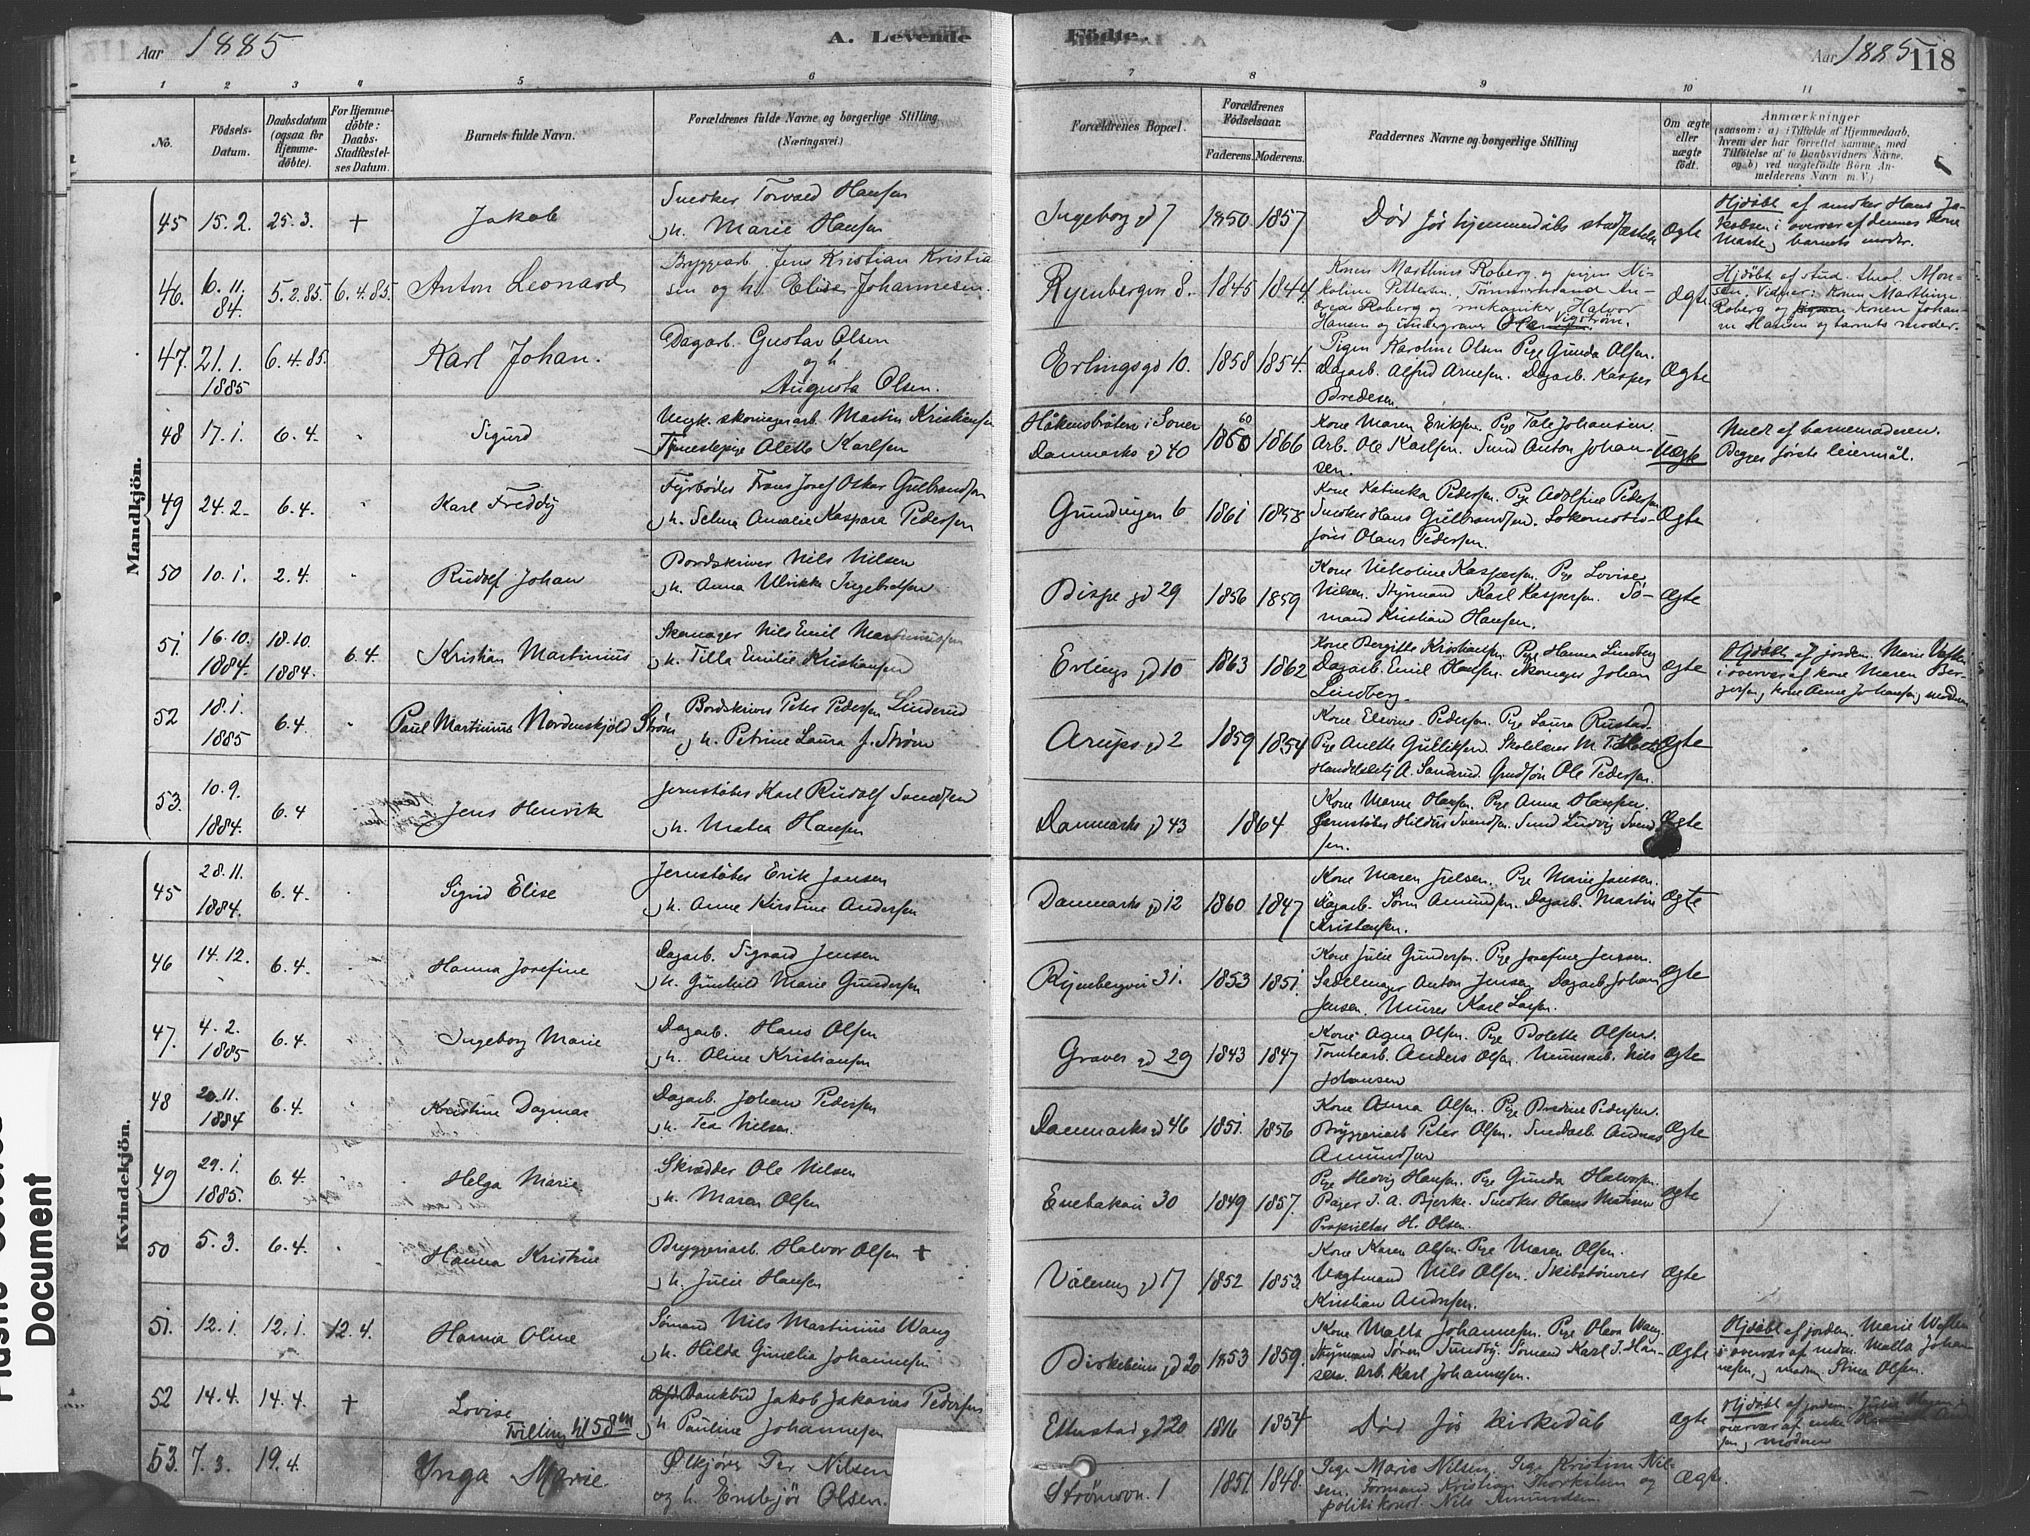 Aar 1885
A. Levende Födte.
Aar 1885 118
1 2 3 4 5 6 7 8 9 10 11
No.
Födsels-
Datum.
Daabsdatum
(ogsaa for
Hjemme-
döbte).
For Hjemme-
döbte:
Daabs-
Stadfæstel-
ses Datum.
Barnets fulde Navn.
Forældrenes fulde Navne og borgerlige Stilling
(Næringsvei.)
Forældrenes Bopæl.
Forældrenes
Födselsaar.
Faderens. Moderens.
Faddernes Navne og borgerlige Stilling
Om ægte
eller
uægte
födt.
Anmærkninger
(saasom: a) i Tilfælde af Hjemmedaab,
hvem der har forrettet samme, med
Tilföielse af to Daabsvidners Navne,
og b) ved uægtefödte Börn An-
melderens Navn m. V.)
Mandkjön.
45 15.2. 25.3. + Jakob
Snedker Torvald Hansen
h. Marie Hansen
Ingeborg gd 7 1850 1857
Død før hjemmedåbs stadfæstelse
Ægte
Hjdøbt af snedker Hans Ja-
kobsen i overvær af dennes kone
Marte, barnets moder.
46. 6.11.
84. 5.2.85. 6.4.85. Anton Leonard
Bryggearb. Jens Kristian Kristian
sen og h. Elise Johannesen.
Ryenbergvn 8. 1845 1844.
Konen Marthine Roberg og pigen Ni-
koline Pettersen, Tømmermand An-
dreas Roberg og mekaniker Halvor
Hansen og undergraver Vigstrøm.
Ægte.
Hjdøbt af stud. theol. Mon-
sen. Vidner: Konen Marthine
Roberg og konen Johan-
ne Hansen og barnets moder.
47. 21.1.
1885 6.4.85. Karl Johan.
Dagarb. Gustav Olsen
og h
Augusta Olsen.
Erlingsgd 10. 1858 1854.
Pigen Karoline Olsen Pige Gunda Olsen.
Dagarb. Alfred Arnesen. Dagarb. Kasper
Bredesen.
Ægte
48 17.1. 6.4. Sigurd
Ungk. skomagerarb. Martin Kristiansen
Tjenestepige Alette Karlsen
Håkensbråten i Soner
Danmarks gd 40 60
1850 1866
Kone Maren Eriksen. Pige Tale Johansen.
Arb. Ole Karlsen. Smed Anton Johan-
sen.
Uægte
Meldt af barnemoderen.
Begges første leiermål.
49 24.2. 6.4. Karl Freddy
Fyrbøder Frans Josef Oskar Gulbrandsen
h. Selma Amalie Kaspara Pedersen
6 1861 1858
Kone Katinka Pedersen. Pige Adolfine Pedersen
Snedker Hans Gulbrandsen. Lokomotiv-
fører Olaus Pedersen.
Ægte
50 10.1. 2.4. Rudolf Johan
Bordskriver Nils Nilsen
h. Anna Ulrikke Ingebretsen
Bispe gd 29 1856 1859
Kone Nikoline Kaspersen. Pige Lovise
Nilsen. Styrmand Karl Kaspersen. Sø-
mand Kristian Hansen.
Ægte
51. 16.10.
1884. 18.10.
1884. 6.4. Kristian Martinius
Skomager Nils Emil Martinussen
h. Tilla Emilie Kristiansen
Erlings gd 10 1863 1862
Kone Bergitte Kristiansen. Pige Hanna Lindberg
Dagarb. Emil Hansen. Skomager Johan
Lindberg.
Ægte
Hjdøbt af jordem. Marie
i overvær af kone Maren Ber-
gersen, kone Anne Johansen, moderen
52 18.1.
1885 6.4. Paul Martinius Nordenskjöld Strøm
Bordskriver Peter Pedersen Linderud
h. Petrine Laura f. Strøm
Arups gd 2 1859 1854
Kone Elevine Pedersen. Pige Laura Rustad.
Pige Anette Gulliksen. Skolelærer M.
Handelsbetj. A. Sanderud. Ole Pedersen.
Ægte
53. 10.9.
1884. 6.4 Jens Henrik
Jernstøber Karl Rudolf Svendsen
h. Matea Hansen
Danmarks gd 43 1864
Kone Maren Hansen. Pige Anna Hansen.
Jernstøber Hildus Svendsen. Smed Ludvig Svend
sen.
Ægte
Kvindekjön.
45 28.11.
1884. 6.4. Sigrid Elise
Jernstøber Erik Jansen
h. Anne Kirstine Andersen
Danmarks gd 12 1860 1847
Kone Maren Juelsen. Pige Marie Jansen.
Dagarb. Søren Amundsen. Dagarb. Martin
Kristiansen.
Ægte
46 14.12. 6.4. Hanna Josefine
Dagarb. Sigvard Jensen
h. Gunhild Marie Gundersen
Ryenbergvn 31. 1853 1851.
Kone Julie Gundersen. Pige Josefine Jensen.
Sadelmager Anton Jensen. Dagarb. Johan
Jensen. Murer Karl Larsen.
Ægte
47. 4.2.
1885 6.4. Ingeborg Marie
Dagarb. Hans Olsen
h. Oline Kristiansen
Graver gd 29 1843 1847
Kone Agna Olsen. Pige Bolette Olsen.
Tomtearb. Anders Olsen. Murerarb. Nils
Johansen
Ægte
48 20.11.
1884 6.4. Kristine Dagmar
Dagarb. Johan Pedersen
h. Tea Nilsen.
Danmarks gd 46 1851. 1856
Kone Anna Olsen. Pige Bredine Pedersen.
Bryggeriarb. Peter Olsen. Snedkerarb. Andreas
Amundsen
Ægte
49 29.1.
1885. 6.4. Helga Marie
Skrædder Ole Nilsen
h. Maren Olsen
Enebakvn 30 1849 1857.
Pige Hedvig Hansen. Pige Gunda Halvorsen.
Bager J. A. Bjerke. Snedker Hans Madsen
Proprietær H. Olsen.
Ægte
50 5.3. 6.4. Hanna Kristine
Bryggeriarb. Halvor Olsen +
h. Julie Hansen
Vålereng gd 17 1852 1853
Kone Karen Olsen. Pige Maren Olsen.
Vagtmand Nils Olsen. Skibstømrer
Kristian Andersen.
Ægte
51. 12.1. 12.1. 12.4. Hanna Oline
Sømand Nils Martinius Wang
h. Hilda Gunelia Johannesen
Birkebein gd 20 1853 1859.
Kone Matla Johannesen. Pige Olava Wang.
Styrmand Søren Sundby. Sømand Karl J. Han-
sen. Arb. Karl Johannesen.
Ægte
Hjdøbt af jordem. Marie
i overvær af mdm. Matla Johan-
nesen, madm. Stina Olsen.
52 14.4. 14.4. + Lovise
Tvilling til 58
Bankbud Jakob Jakarias Pedersen
h. Pauline Johannesen
Ettestad gd 20. 1816 1854
Død før kirkedåb
Ægte
Hjdøbt af jordem.
overvær af enke
sen, moderen
53. 7.3. 19.4. Ynga Marie.
Ølkjører Per Nilsen
og h. Engebjør Olsen.
Strømsvn. 1 1851. 1848.
Pige Marie Nilsen, Pige Kristine Nil-
sen. Formand Kristian Thorkelsen og
politikonst. Nils Amundsen.
Ægte.
Document